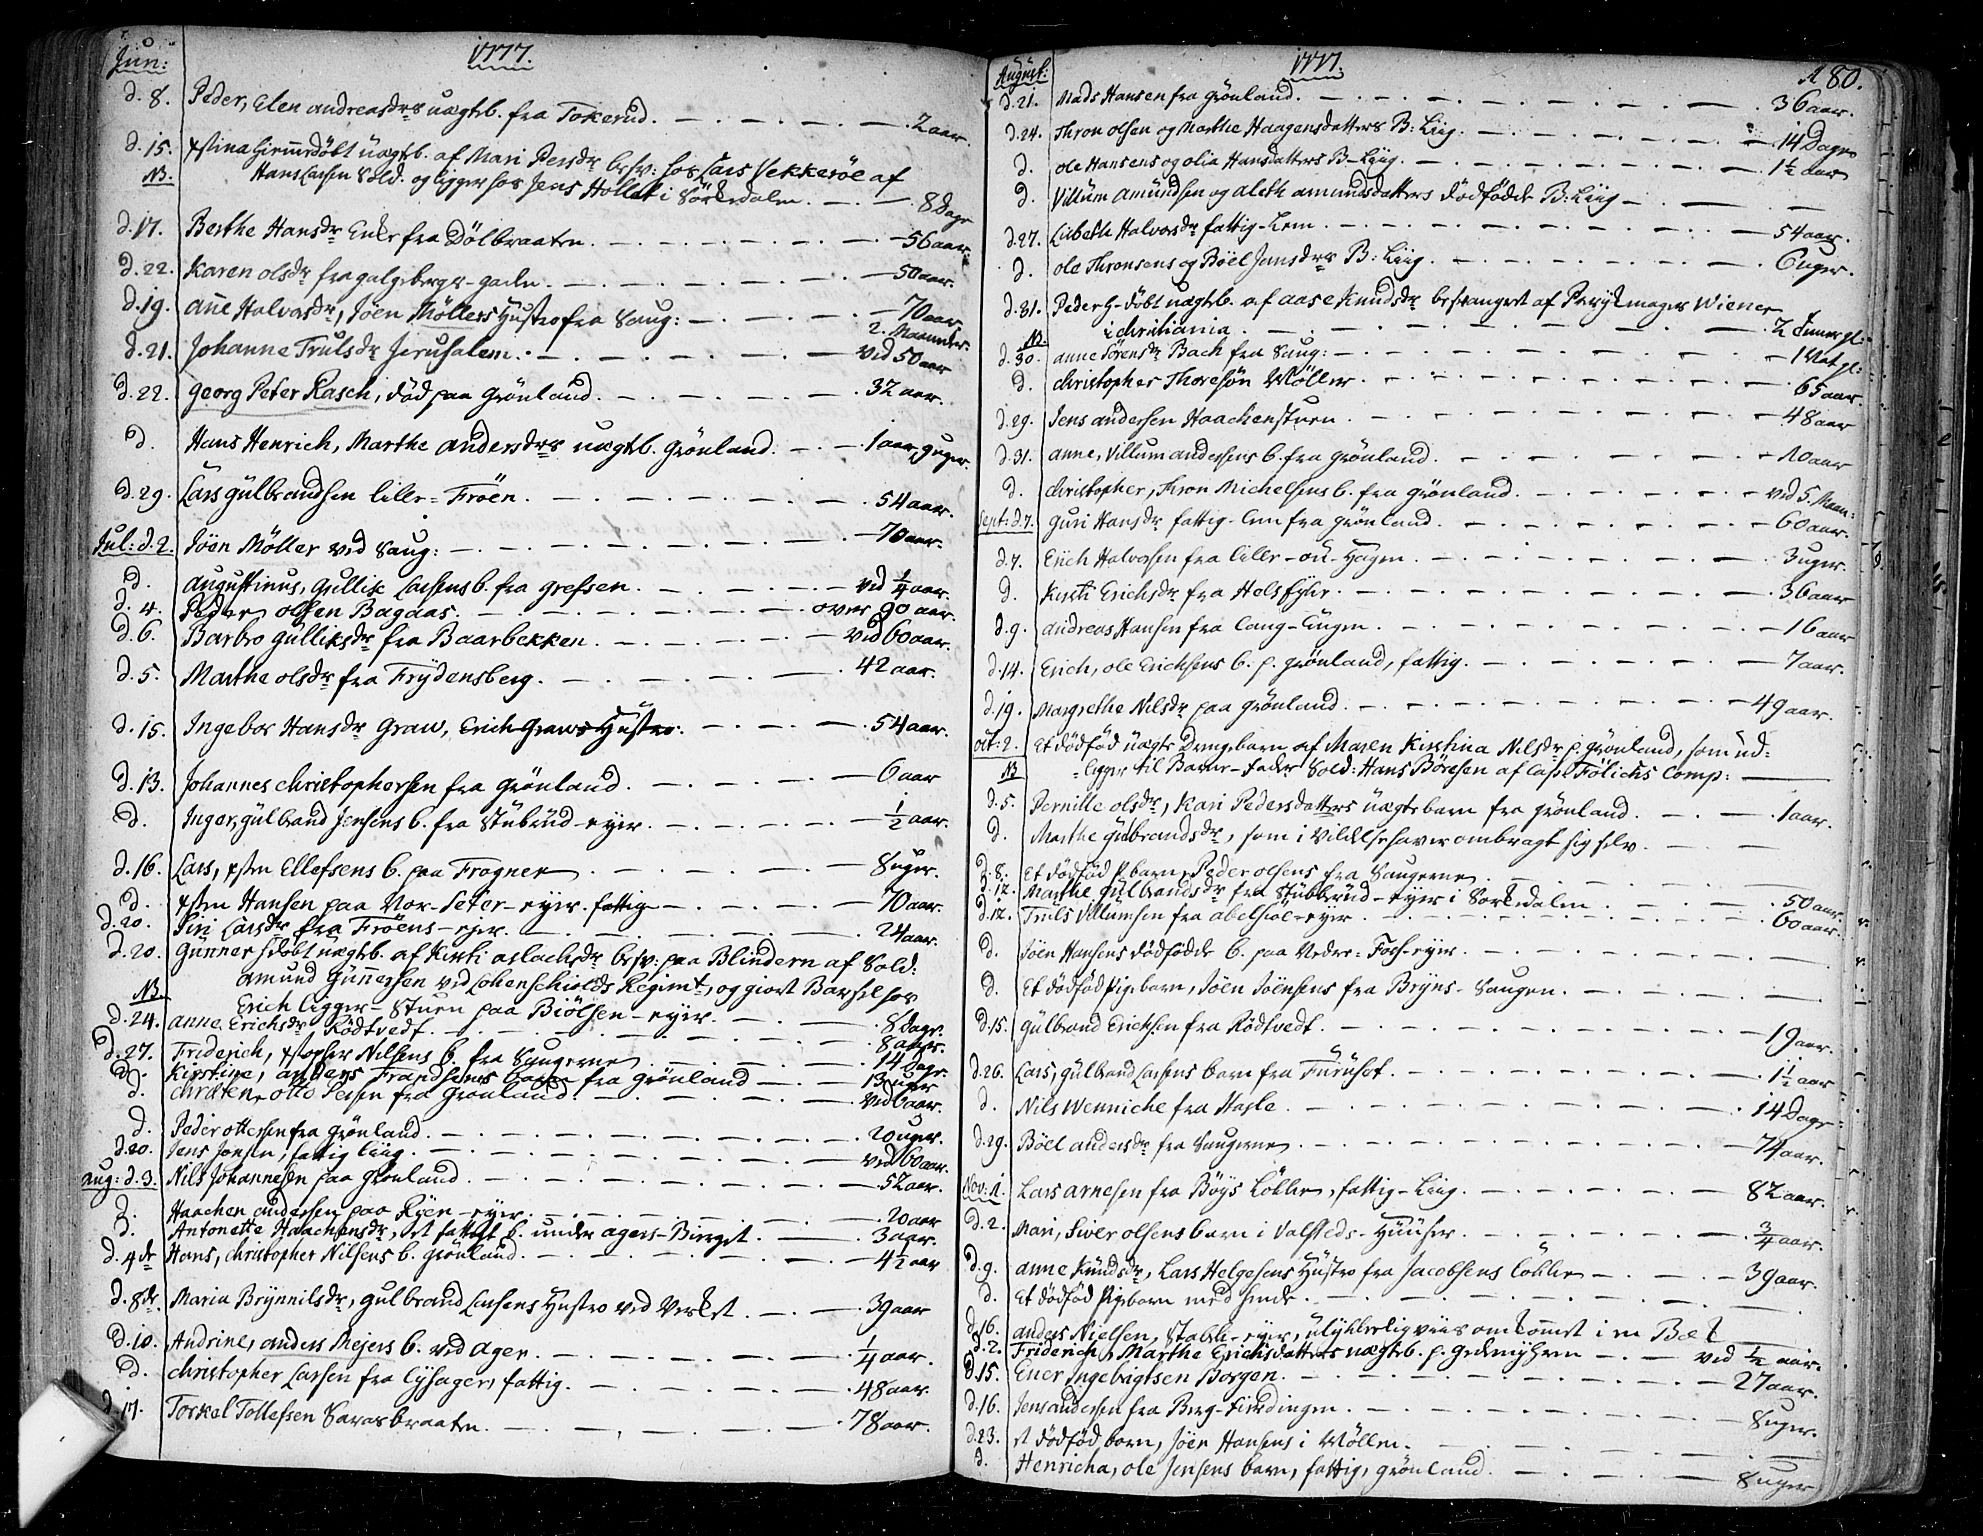 1777.
Jun:
d. 8. Peder, Elen andreasdrs uægteb. fra Tokerud. 2 aar.
d. 15. xstina hiemedøbt uægteb. af Mari Persdr besv: hos Lars Vekkerøe af
NB. Hans Larsen Sold. og ligger hos Jens Hollet i Sørkedalen. 8 Dage
d. 17. Berthe Hansdr Enke fra Dölbraaten. 56 aar.
d. 22. Karen olsdr fra galgebergs-gaden. 50 aar.
d. 19. ane Halvorsdr, Jöen Möllers Hustro fra Saug: 70 aar. 2. Maaneder.
d. 21. Johanne Trulsdr Jerusalem. ved 50 aar
d. 22. georg Peter Rasch, død paa Grönland. 32 aar.
d. Hans Henrich, Marthe andersdrs uægteb. Grönland. 1 aar, 9 uger.
d. 29. Lars gulbrandsen lille-Fröen. 54 aar.
Jul: d. 2. Jöen Möller ved Saug: 70 aar.
d. augustinus, gullik Larsens b. fra grefsen. ved 1/4 aar.
d. 4. Peder olsen Bagaas. over 90 aar.
d. 6. Barbro gulliksdr fra Baarbekken. ved 60 aar.
d. 5. Marthe olsdr fra Frydensberg. 42 aar.
d. 15. Ingebor Hansdr Graw, Erich Graws Hustro. 54 aar.
d. 13. Johannes christophersen fra grönland. 6 aar
d. Inger, gulbrand Jensens b. fra Stubrud-eyer. 1/2 aar.
d. 16. Lars, xsten Ellefsens b. paa Frogner 8 uger.
d. xsten Hansen paa Vor-Seter-eyer. fattig 70 aar.
d. 20. Siri Larsdr fra Fröens-ejer. 24 aar.
d. 20. Gunner hdöbt uægteb. af Kirsti aslachsdr besv: paa Blindern af Sold:
NB. amund Gunnersen ved Lohenschiolds Regimt, og giort Barsel hos
Erich ligger-Stuen paa Biölsen-eyer. 8 dage.
d. 24. anne Erichsdr Rödtvedt. 8 aar.
d. 27. Friderich, xstopher Nilsens b. fra Saugerne 14 Dage.
d. Kirstine, anders Frandsens fra Grönland 13 uger
d. christen, otto Persen fra Grönland. ved 6 aar.
d. Peder ottersen fra Grönland. 20 uger.
d. 20. Jens Jonsen, fattig Liig. ved 60 aar.
aug: d. 3. Nils Johannesen paa Grönland 52 aar.
d. Haachen andersen paa Ryen-eyer. 20 aar
d. Antonette Haachensdr, et fattigt b. under agers-Bierget. 3 aar.
d. 4de Hans, christopher Nilsens b. grönland. 4 1/2 aar
d. 8de Maria Brynnilsdr, gulbrand Larsens Hustro ved Verket. 39 aar
d. 10. Andrine, anders Mejers b. ved ager. 1/4 aar.
d. christopher Larsen fra Lysager, fattig. 48 aar.
d. 17. Torkel Tollefsen Sarasbraaten. 78 aar.
1777.
80.
August:
d. 21. Mads Hansen fra Grönland. 36 aar.
d. 24. Thron olsen og Marthe Haagensdatters B: Liig. 14 Dage
d. ole Hansens og olia Hansdatters B-Liig. 1 1/2 aar
d. Villum amundsen og aleth amundsdatters dödfödde B: Liig
d. 27. Lisbeth Halvorsdr fattig-Lem. 54 aar.
d. ole Thronsens og Böel Jensdrs B: Liig. 6 uger.
d. 31. Peder h-döbt uægteb. af aase Knudsdr besvangert af Perykmager Wiener
NB. i christiania.
d. 30. anne Sörensdr Bach fra Saug:
d. christopher Thoresön Möller. 65 aar.
d. 29. Jens andersen Haachenstuen. 48 aar
d. 31. anne, Villum andersens b. fra Grönland. 10 aar
d. christopher, Thron Michelsens b. fra grönland. ved 5. Maan:
Sept: d. 7. guri Hansdr fattig-lem fra Grönland. 60 aar.
d. 7. Erich Halvorsen fra lille-ou-Hagen. 3 uger.
d. Kirsti Erichsdr fra Helsfyhr. 36 aar
d. 9. andreas Hansen fra lang-Lingen. 16 aar
d. 14. Erich, ole Ericksens b. p. grönland, fattig. 7 aar.
d. 19. Margrethe Nilsdr paa grönland. 49 aar.
oct: 2. Et dödföd uægte Drengebarn af Maren Kirstina Nilsdr p. Grönland, som ud-
NB. ligger til Barne-Fader Sold: Hans Böresen af Capt: Fölichs Comp:
d. 5. Pernille olsdr, Kari Pedersdatters uægtebarn fra Grönland. 1 aar.
d. Marthe gulbrandsdr, som i Vildelse haver ombragt sig selv.
d. 8. Et dödföd p: barn, Peder olsens fra Saugerne.
d. 12. Marthe gulbrandsdr fra Stubberud-eyer i Sørkedalen 50 aar.
d. 12. Truls Villumsen fra abelsöe-eyer. 60 aar.
d. Jöen Hansens dödfödde b. paa Nedre-Foss-eyer.
d. Et dödföd Pigebarn, Jöen Jöensens fra Bryns-Saugen.
d. 15. Gulbrand Ericksen fra Rödtvedt. 19 aar.
d. 26. Lars, gulbrand Larsens barn fra Furuset. 1 1/2 aar
d. Nils Wenniche fra Hasle. 14 Dage.
d. 29. Böel andersdr fra Saugerne 74 aar.
Nov: 1. Lars arnesen fra Böys Lökke, fattig-Liig. 82 aar.
d. 2. Mari, Siver olsens barn i Valsteds-Huuser. 3/4 aar.
d. 9. anne Knudsdr, Lars Helgesens Hustro fra Jacobsens lökke 39 aar.
d. Et dödföd Pigebarn med hende.
d. 16. anders Nielsen, Stabek-eyer, ulykkeligviis omkommet i en Bek
d. 2. Friderich, Marthe Erichsdatters uægteb. p. ved 1/2 aar.
d. 15. Ener Ingebrigtsen Borgen. 27 aar.
d. 16. Jens andersen fra Berg-Fierdingen 8 uger.
d. 23. et dödföd barn, Jöen Hansens i Möllen.
d. Henricha, ole Jensens barn, fattig, Grönland. 8 uger